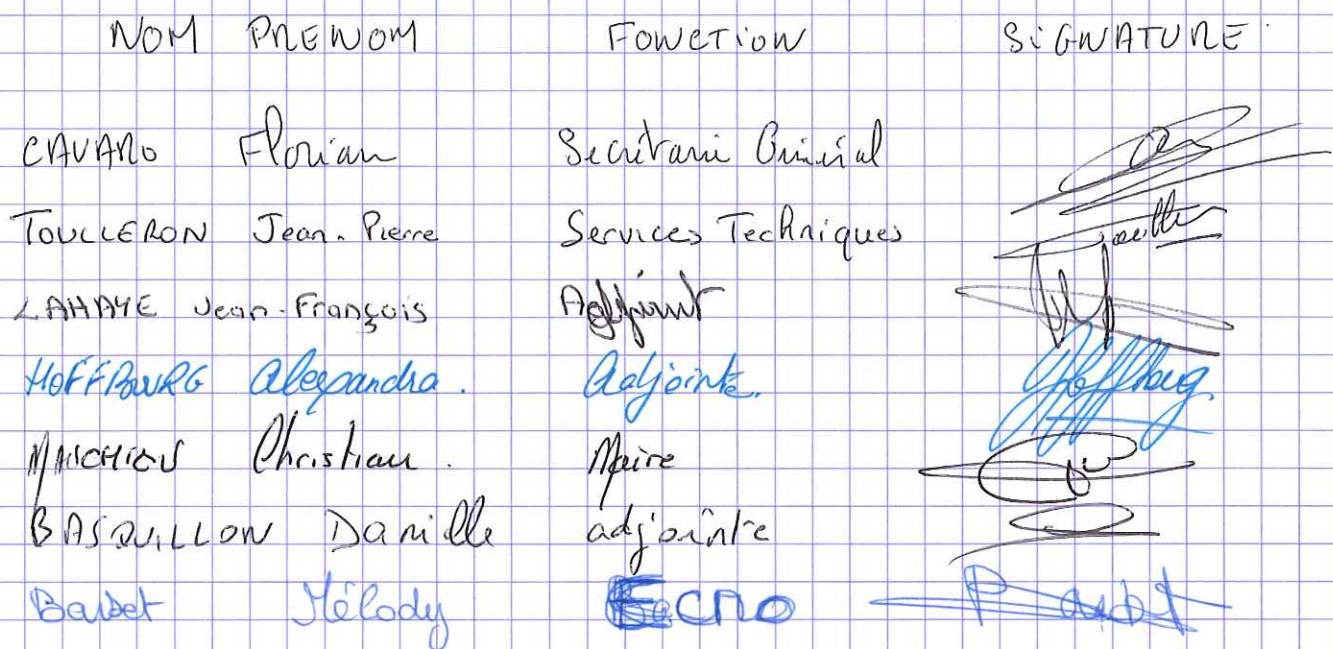 NOM PRENOM FONCTION SIGNATURE
CAVARO Florian Secrétaire Général
TOULLERON Jean-Pierre Services Techniques
LAHAYE Jean-François Adjoint
HOFFBOURG Alexandra. Adjointe.
Christian. Maire
BASQUILLON Danielle adjointe
Barbet Mélody ECNO